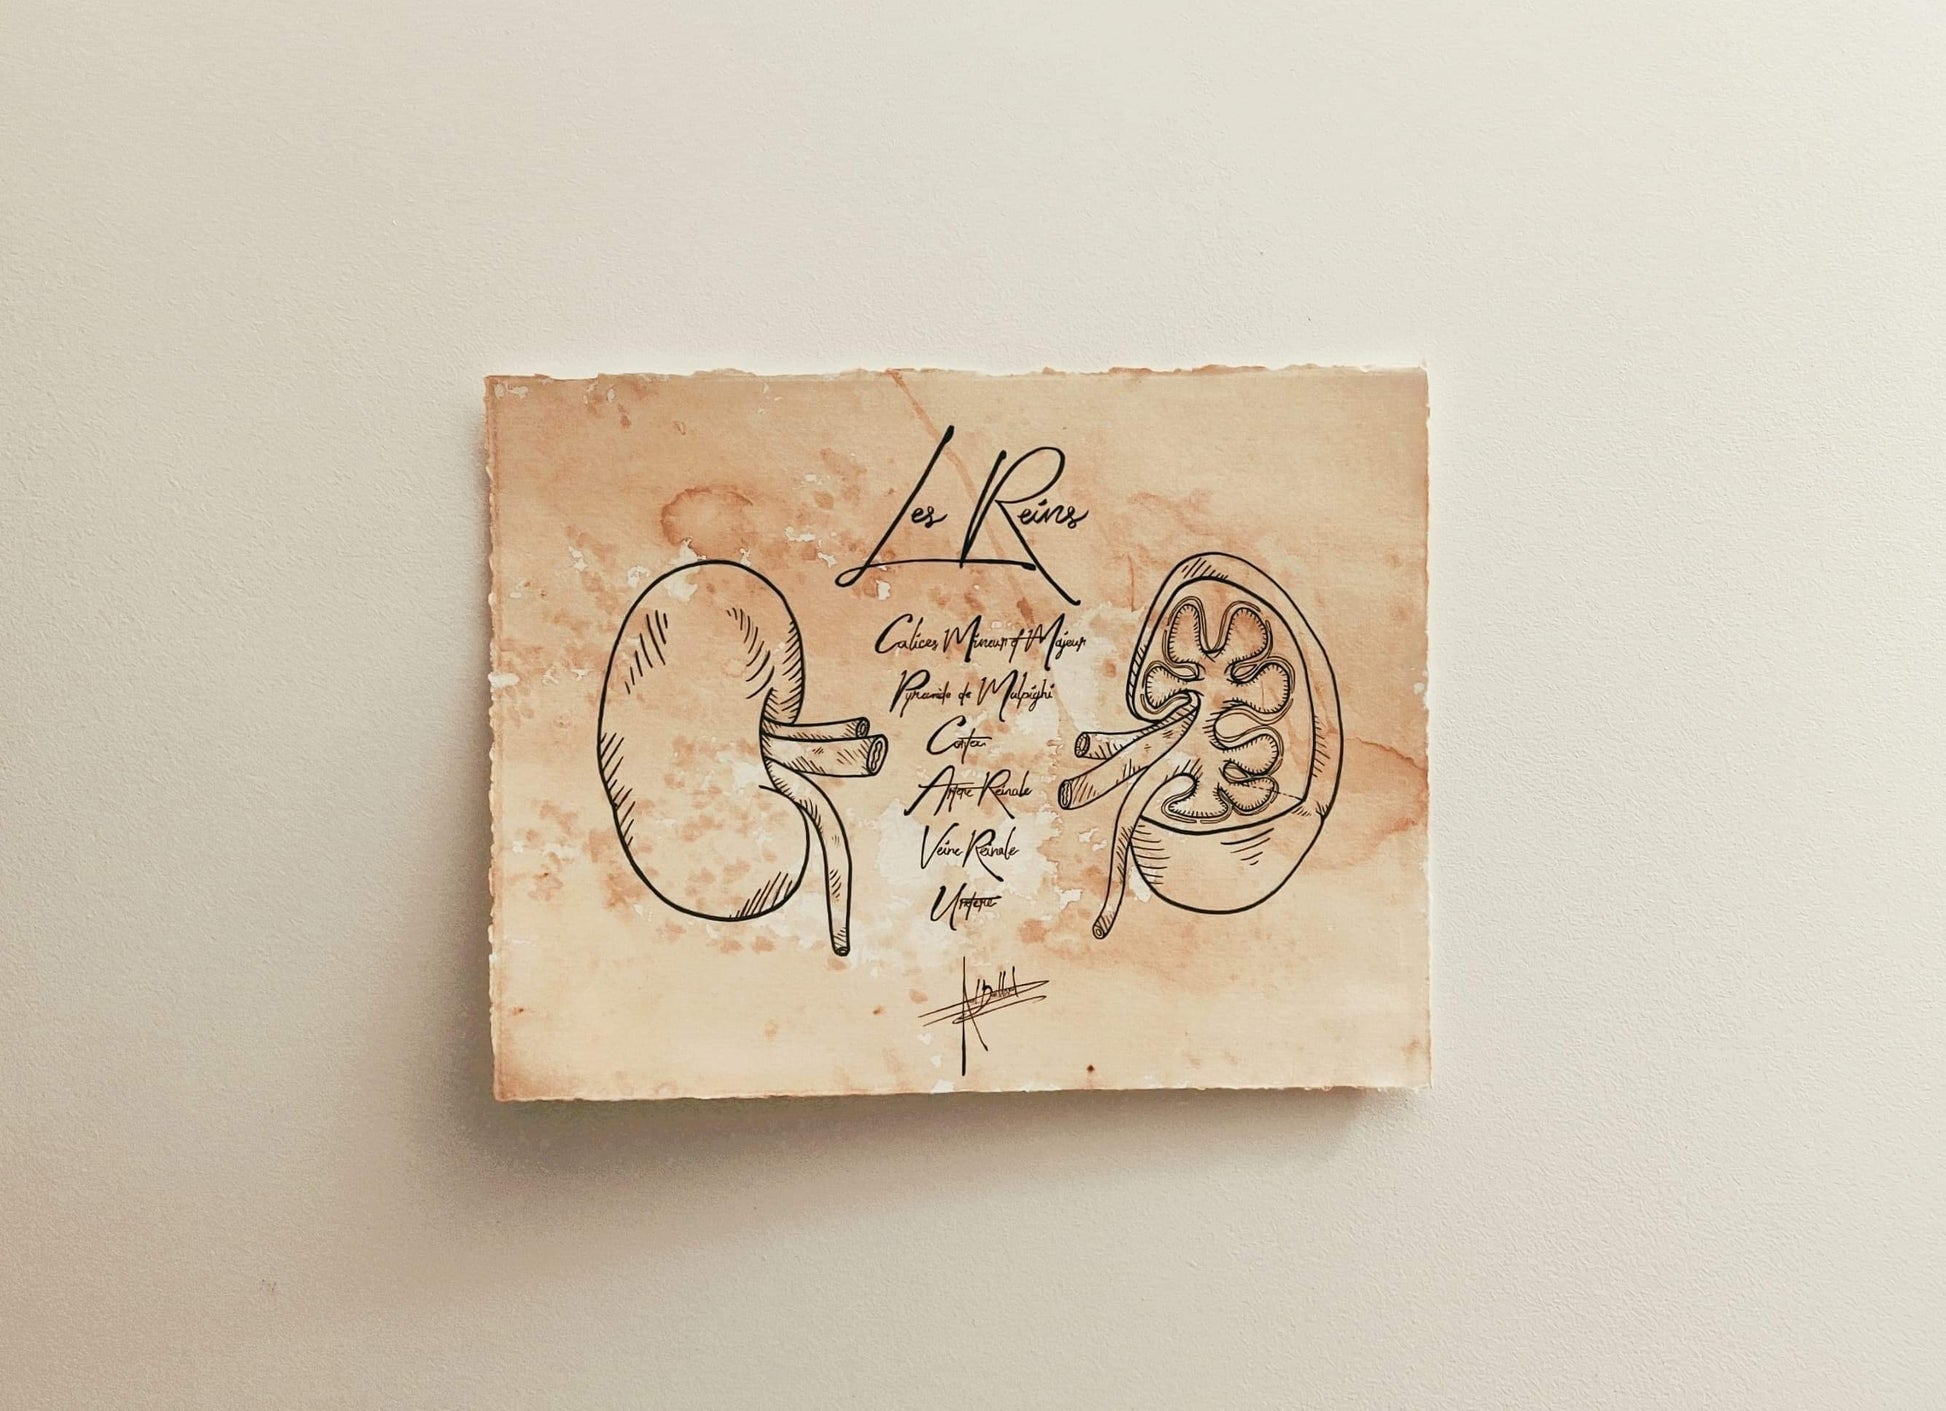 Les Reins
Calices Mineur et Majeur
Pyramide de Malpighi
Cortex
Artere Reinale
Veine Reinale
Uretere